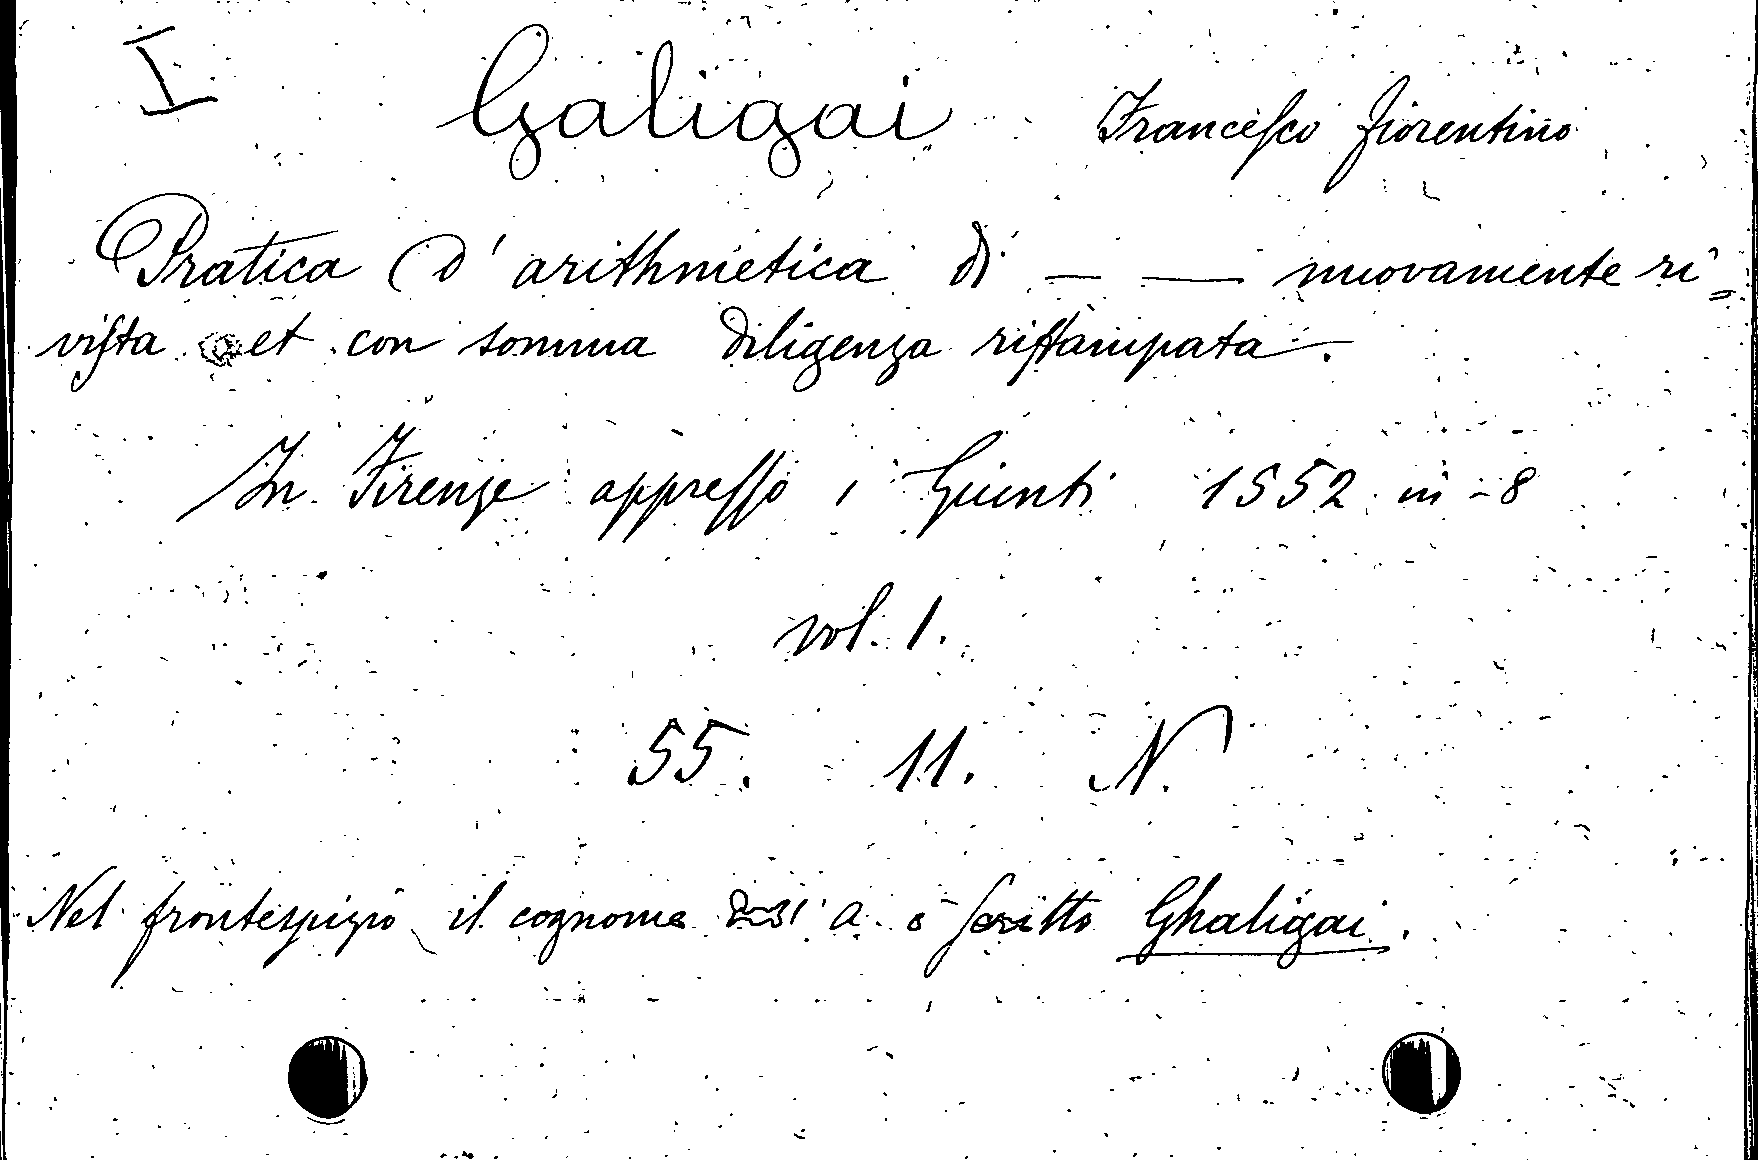 I Galigai Francesco fiorentino
Pratica d'arithmetica di — — nuovamente ri=
vista et con somma diligenza ristampata.
In Firenze appresso i Giunti 1552 in-8
vol. 1.
55. 11. N.
Nel frontespizio il cognome a è scritto Ghaligai.